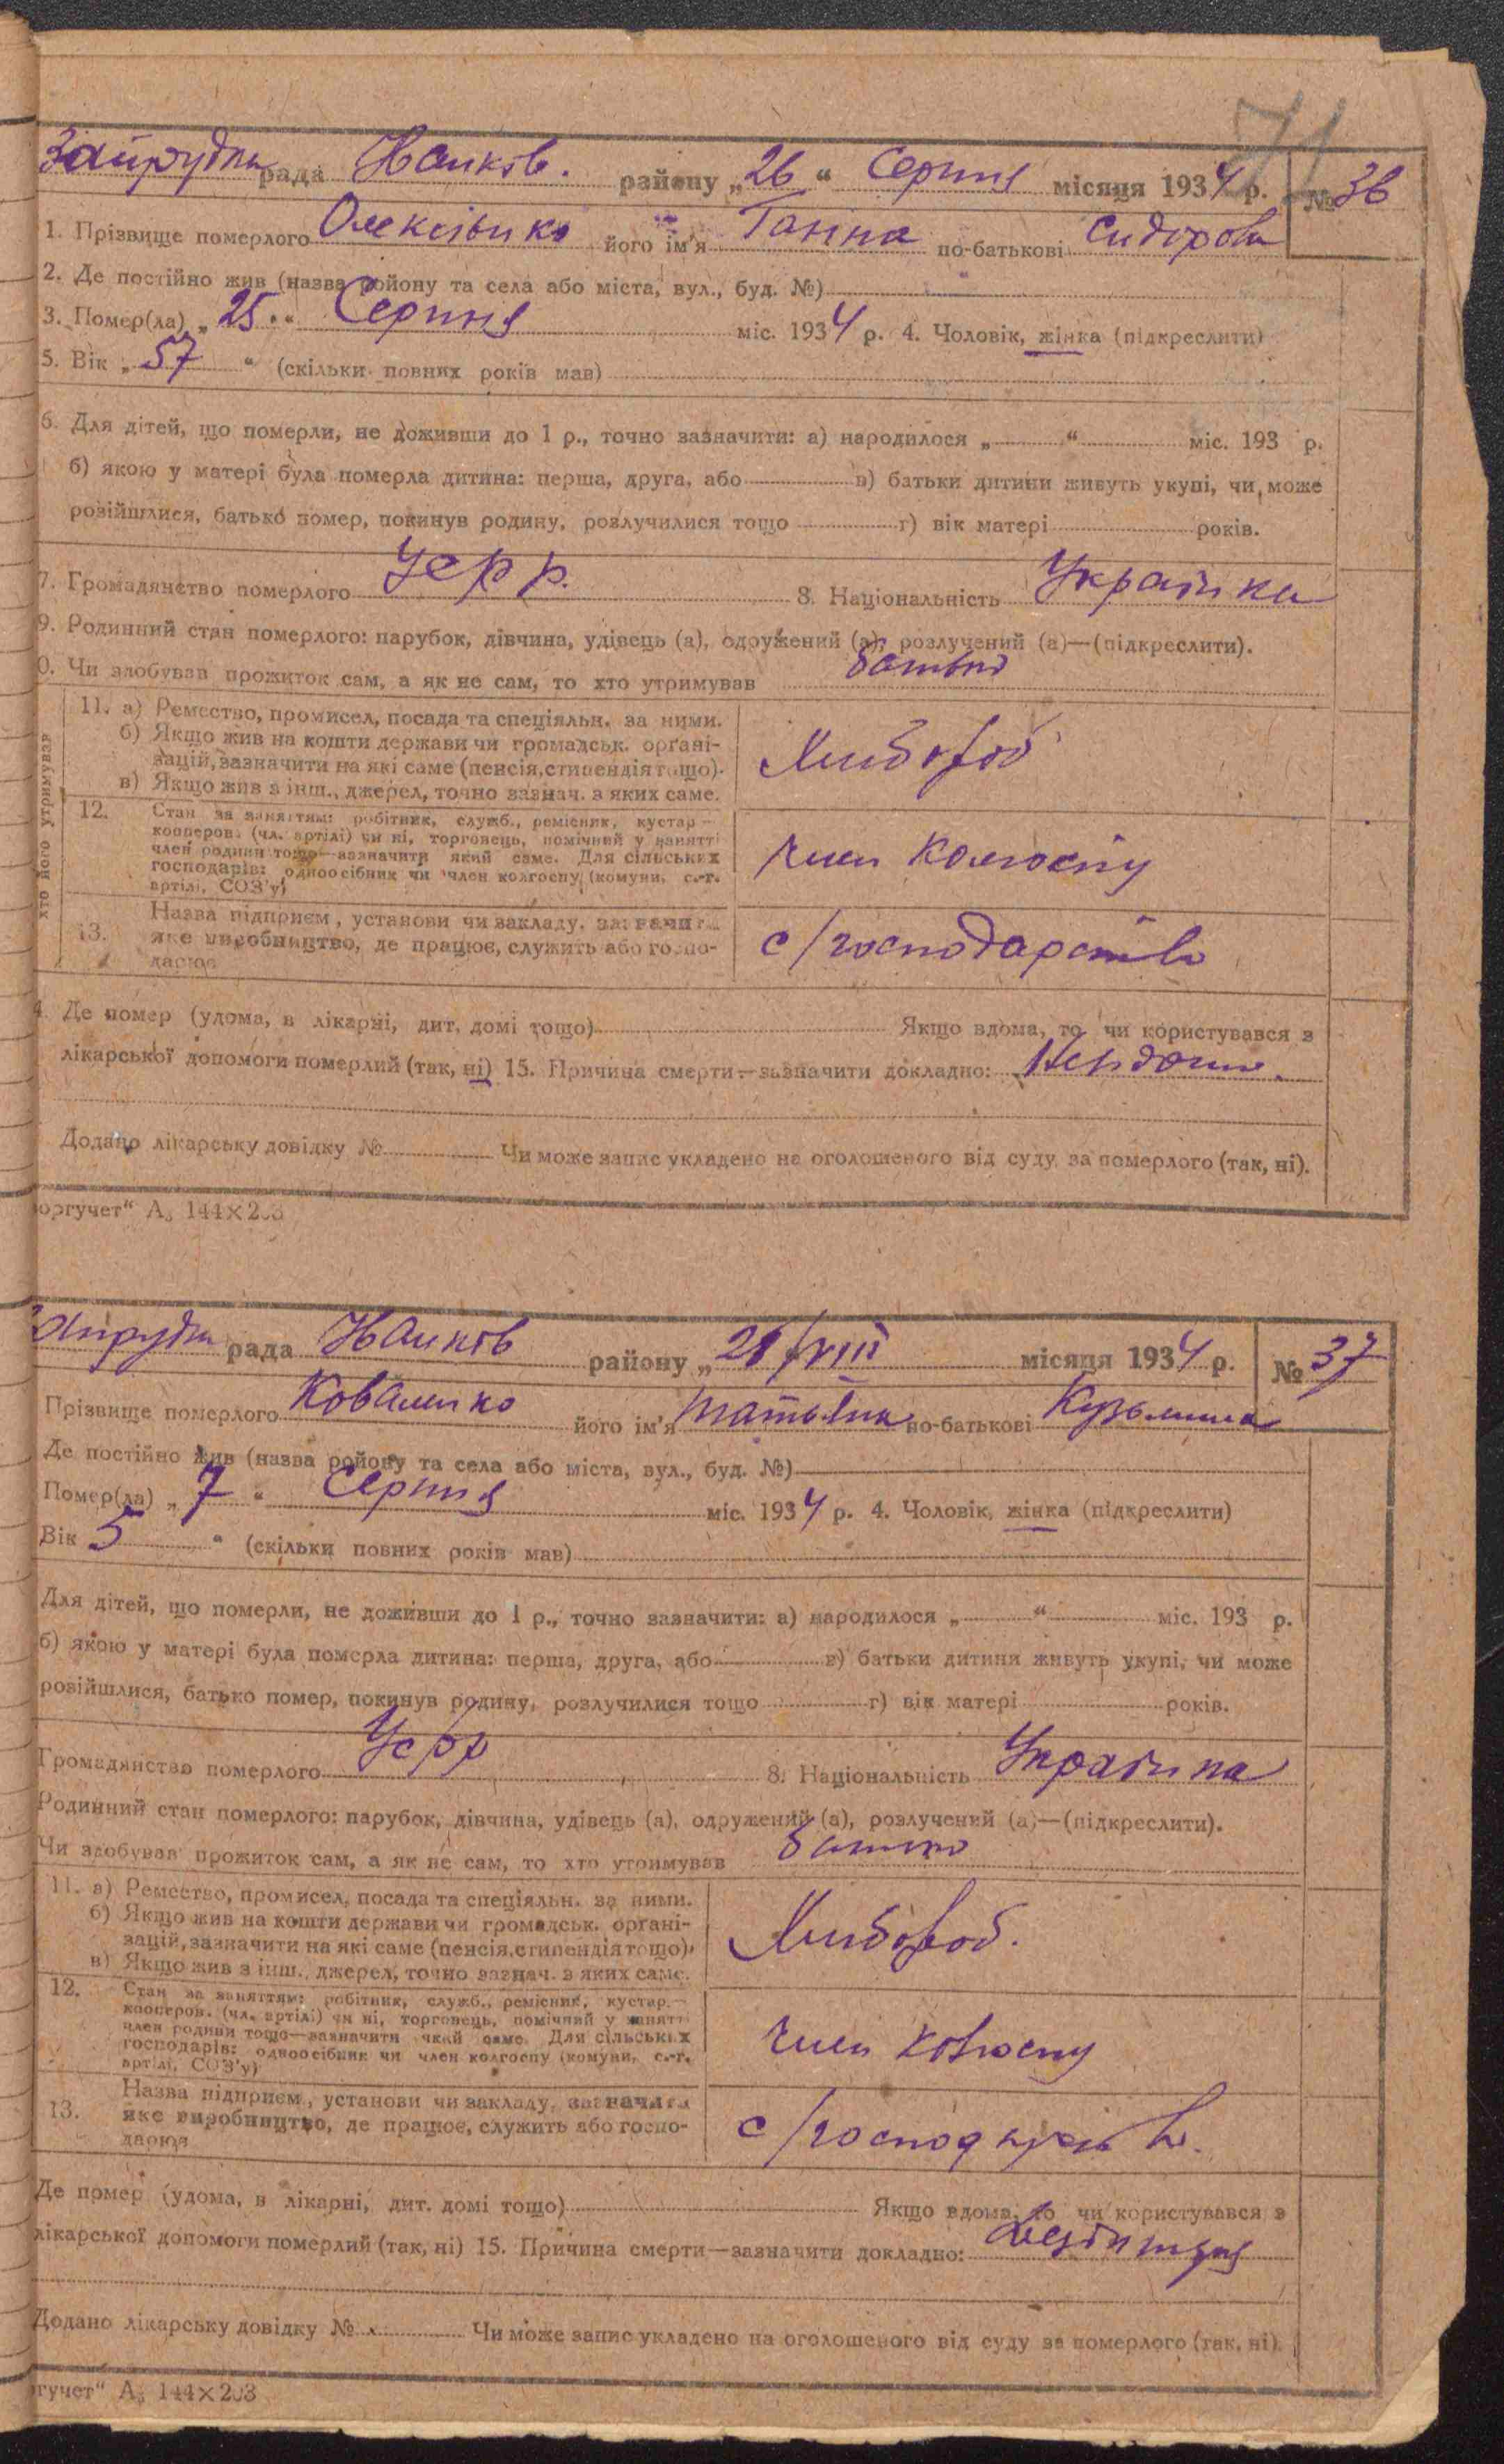 71
рада Ивонків. району „26“ Серпня місяця 1934 р. № 36
1. Прізвище померлого Олексієнко його ім'я Ганна по-батькові Сидоров
2. Де постійно жив (назва ройону та села або міста, вул., буд. №)
3. Помер(ла) „25“ Серпня міс. 1934 р. 4. Чоловік, жінка (підкреслити)
5. Вік „57“ (скільки повних років мав)
6. Для дітей, що померли, не доживши до 1 р., точно зазначити: а) народилося „ “ міс. 193 р.
б) якою у матері була померла дитина: перша, друга, або в) батьки дитини живуть укупі, чи може
розійшлися, батько помер, покинув родину, розлучилися тощо г) вік матері років.
7. Громадянство померлого УСРР. 8. Національність Українка
9. Родинний стан померлого: парубок, дівчина, удівець (а), одружений (а), розлучений (а)—(підкреслити).
0. Чи здобував прожиток сам, а як не сам, то хто утримував батько
хто його утримував
11. а) Ремество, промисел, посада та спеціяльн. за ними.
б) Якщо жив на кошти держави чи громадськ. органі-
зацій, зазначити на які саме (пенсія, стипендія тощо).
в) Якщо жив з інш., джерел, точно зазнач. з яких саме.
Хлібороб
12. Стан за заняттям: робітник, служб., ремісник, кустар—
кооперов. (чл. артілі) чи ні, торговець, помічний у занятті
член родини тощо—зазначити який саме. Для сільських
господарів: одноосібник чи член колгоспу (комуни, с.-г.
артілі, СОЗ'у)
член колгоспу
13. Назва підприєм, установи чи закладу, зазначити
яке виробництво, де працює, служить або госпо-
дарює
с/господарство
4. Де помер (удома, в лікарні, дит. домі тощо) Якщо вдома, то чи користувався з
лікарської допомоги померлий (так, ні) 15. Причина смерти—зазначити докладно:
Додано лікарську довідку № Чи може запис укладено на оголошеного від суду за померлого (так, ні).
оргучет“ А₅ 144×203
рада Ивонків району „ /VIII місяця 1934 р. № 37
Прізвище померлого Коваленко його ім'я Татьяна по-батькові Кузьминна
Де постійно жив (назва ройону та села або міста, вул., буд. №)
Помер(ла) „7“ Серпня міс. 1934 р. 4. Чоловік, жінка (підкреслити)
Вік 5 “ (скільки повних років мав)
Для дітей, що померли, не доживши до 1 р., точно зазначити: а) народилося „ “ міс. 193 р.
б) якою у матері була померла дитина: перша, друга, або в) батьки дитини живуть укупі, чи може
розійшлися, батько помер, покинув родину, розлучилися тощо г) вік матері років.
Громадянство померлого УСРР 8. Національність Українка
Родинний стан померлого: парубок, дівчина, удівець (а), одружений (а), розлучений (а)—(підкреслити).
Чи здобував прожиток сам, а як не сам, то хто утримував батько
11. а) Ремество, промисел, посада та спеціяльн. за ними.
б) Якщо жив на кошти держави чи громадськ. органі-
зацій, зазначити на які саме (пенсія, стипендія тощо),
в) Якщо жив з інш., джерел, точно зазнач. з яких саме.
Хлібороб.
12. Стан за заняттям: робітник, служб., ремісник, кустар.—
кооперов. (чл. артілі) чи ні, торговець, помічний у занятті
член родини тощо—зазначити який саме. Для сільських
господарів: одноосібник чи член колгоспу (комуни, с.-г.
артілі, СОЗ'у)
член колгоспу
13. Назва підприєм, установи чи закладу, зазначити
яке виробництво, де працює, служить або госпо-
дарює
с/господарство.
Де помер (удома, в лікарні, дит. домі тощо) Якщо вдома, то чи користувався з
лікарської допомоги померлий (так, ні) 15. Причина смерти—зазначити докладно:
Додано лікарську довідку № Чи може запис укладено на оголошеного від суду за померлого (так, ні).
гучет“ А₅ 144×203